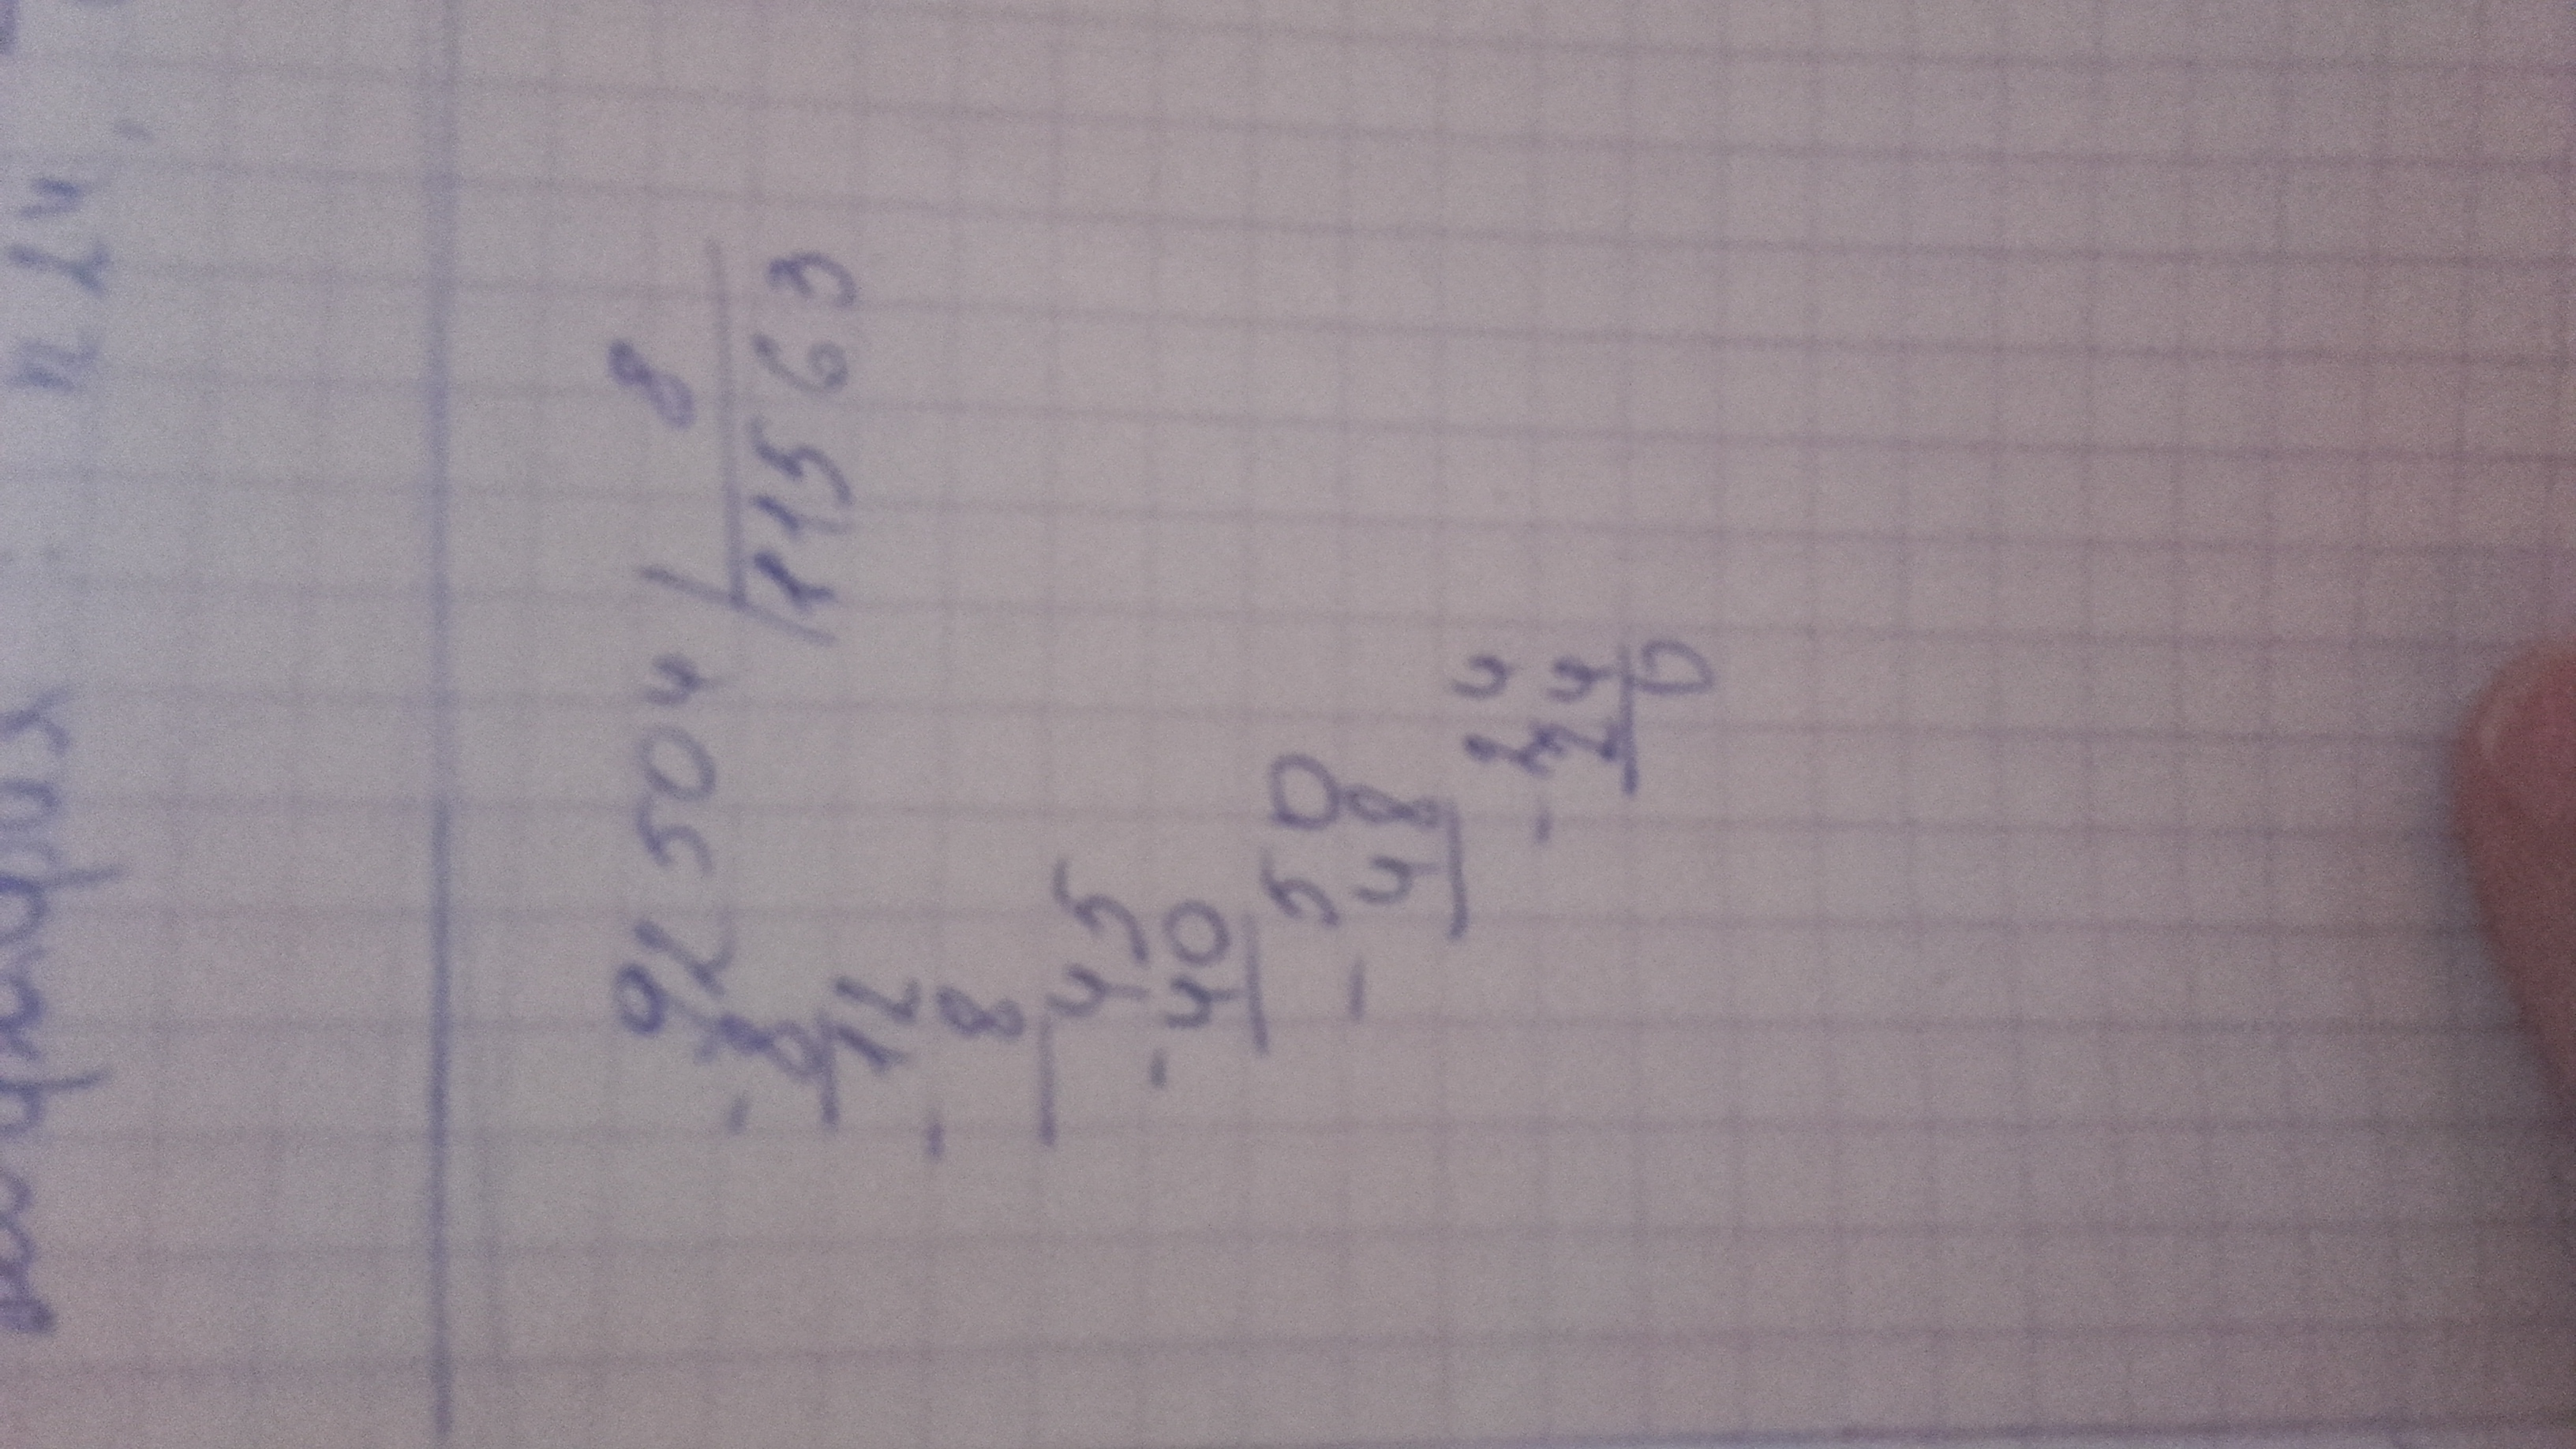 92504 | 8
- 8 11563
12
- 8
45
- 40
50
- 48
24
- 24
0